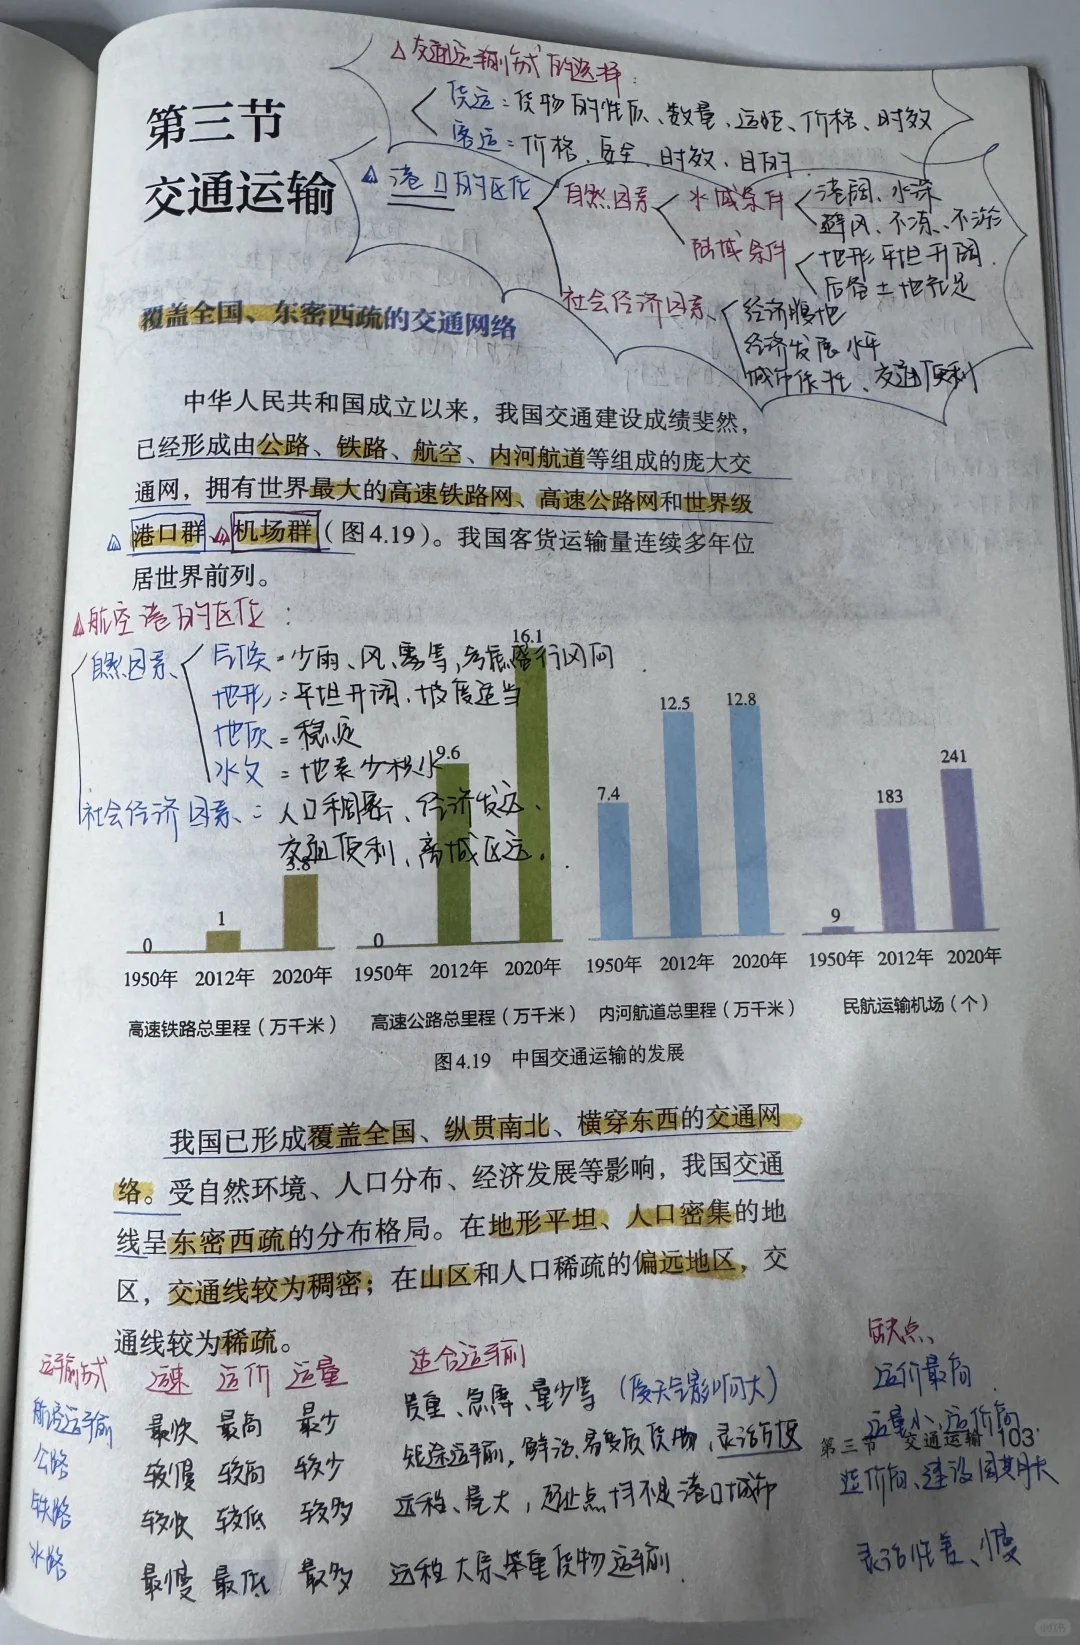 △交通运输方式的选择：
货运：货物的性质、数量、运距、价格、时效
客运：价格、安全、时效、目的
第三节
交通运输
△港口的区位
自然因素
水域条件
港阔、水深
避风、不冻、不淤
陆域条件
地形平坦开阔
后备土地充足
社会经济因素
经济腹地
经济发展水平
城市依托、交通便利
覆盖全国、东密西疏的交通网络
中华人民共和国成立以来，我国交通建设成绩斐然，
已经形成由公路、铁路、航空、内河航道等组成的庞大交
通网，拥有世界最大的高速铁路网、高速公路网和世界级
港口群、机场群（图4.19）。我国客货运输量连续多年位
居世界前列。
△航空港的区位：
自然因素
气候：少雨、风、雾等，考虑盛行风向
地形：平坦开阔、坡度适当
地质：稳定
水文：地表少积水
社会经济因素：人口稠密、经济发达、
交通便利、离城区远。
0 1 3.8
1950年 2012年 2020年
高速铁路总里程（万千米）
0 9.6 16.1
1950年 2012年 2020年
高速公路总里程（万千米）
7.4 12.5 12.8
1950年 2012年 2020年
内河航道总里程（万千米）
9 183 241
1950年 2012年 2020年
民航运输机场（个）
图4.19 中国交通运输的发展
我国已形成覆盖全国、纵贯南北、横穿东西的交通网
络。受自然环境、人口分布、经济发展等影响，我国交通
线呈东密西疏的分布格局。在地形平坦、人口密集的地
区，交通线较为稠密；在山区和人口稀疏的偏远地区，交
通线较为稀疏。
运输方式 运速 运价 运量 适合运输 缺点
航空运输 最快 最高 最少 贵重、急需、量少等（受天气影响大） 运价最高
公路 较慢 较高 较少 短途运输，鲜活、易变质货物，灵活方便 运量小、运价高
第三节 交通运输 103
铁路 较快 较低 较多 远程、量大，起止点均不是港口城市 造价高、建设周期长
水路 最慢 最低 最多 远程大宗笨重货物运输 灵活性差、慢
小红书